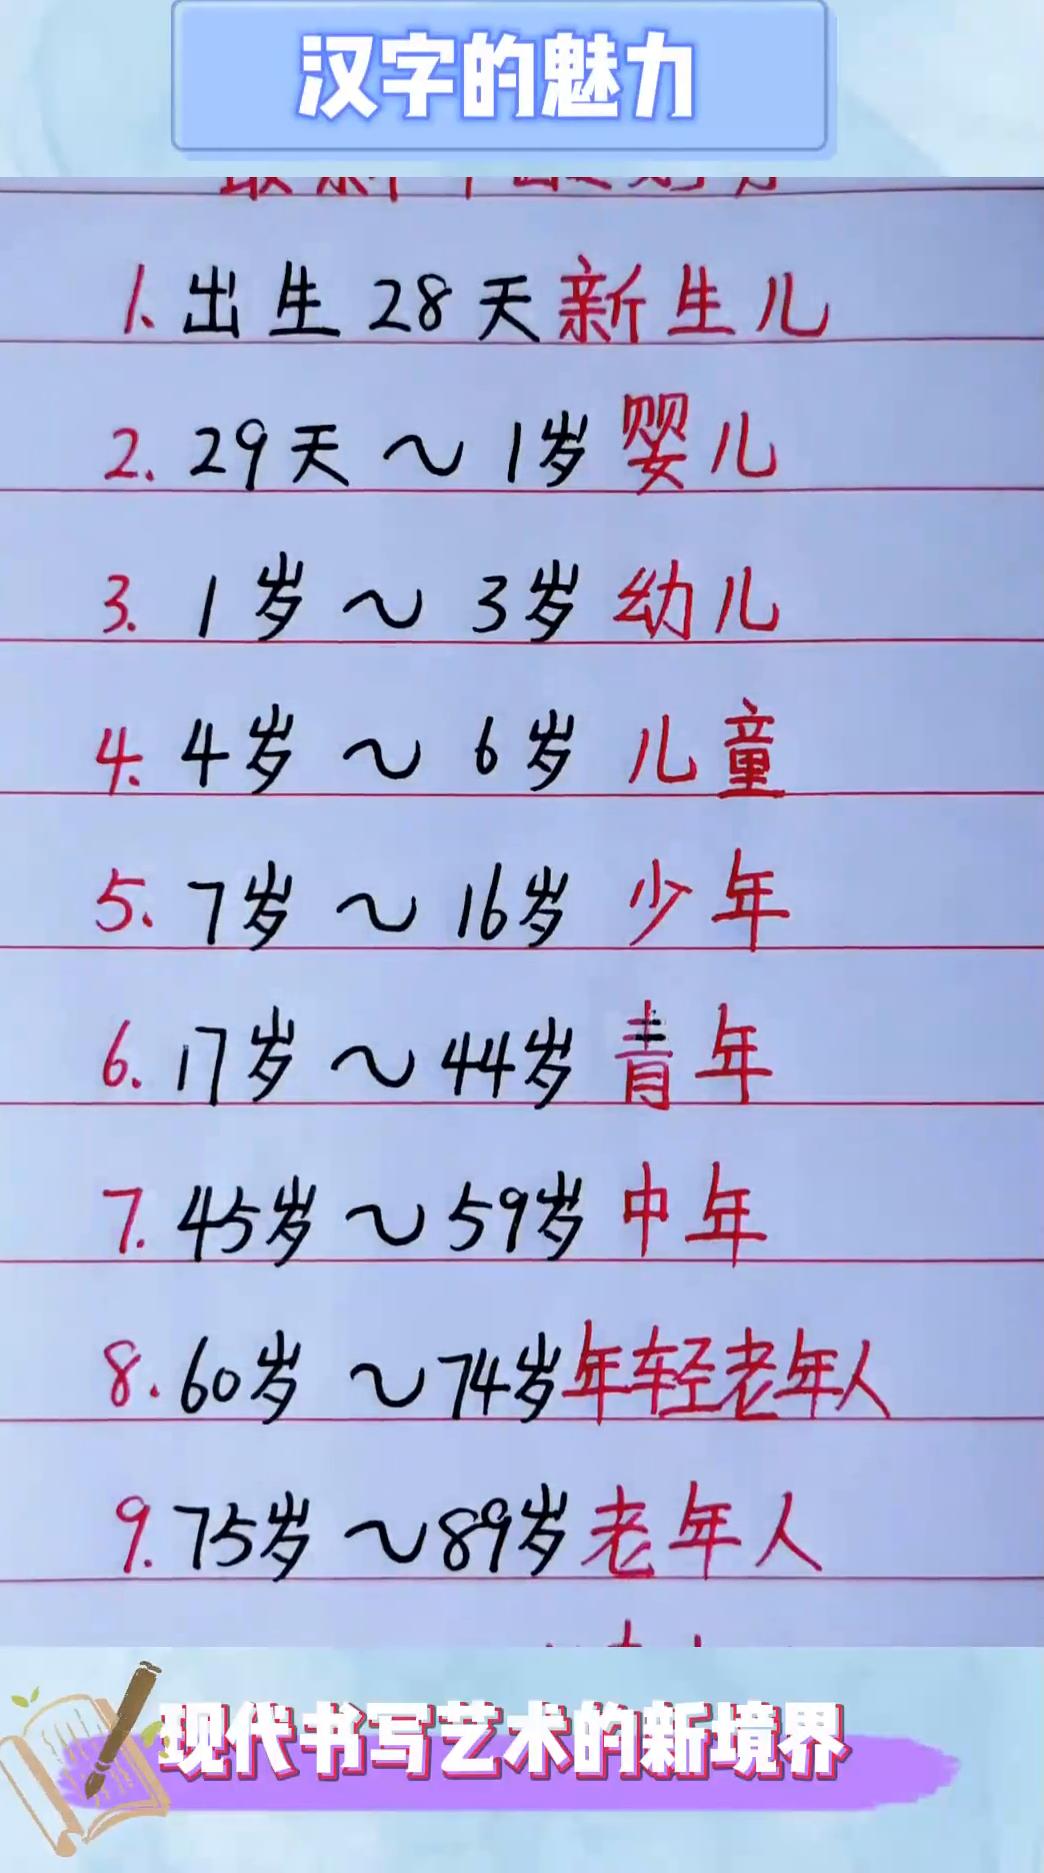 汉字的魅力
1. 出生28天新生儿
2. 29天～1岁婴儿
3. 1岁～3岁幼儿
4. 4岁～6岁儿童
5. 7岁～16岁少年
6. 17岁～44岁青年
7. 45岁～59岁中年
8. 60岁～74岁年轻老年人
9. 75岁～89岁老年人
现代书写艺术的新境界